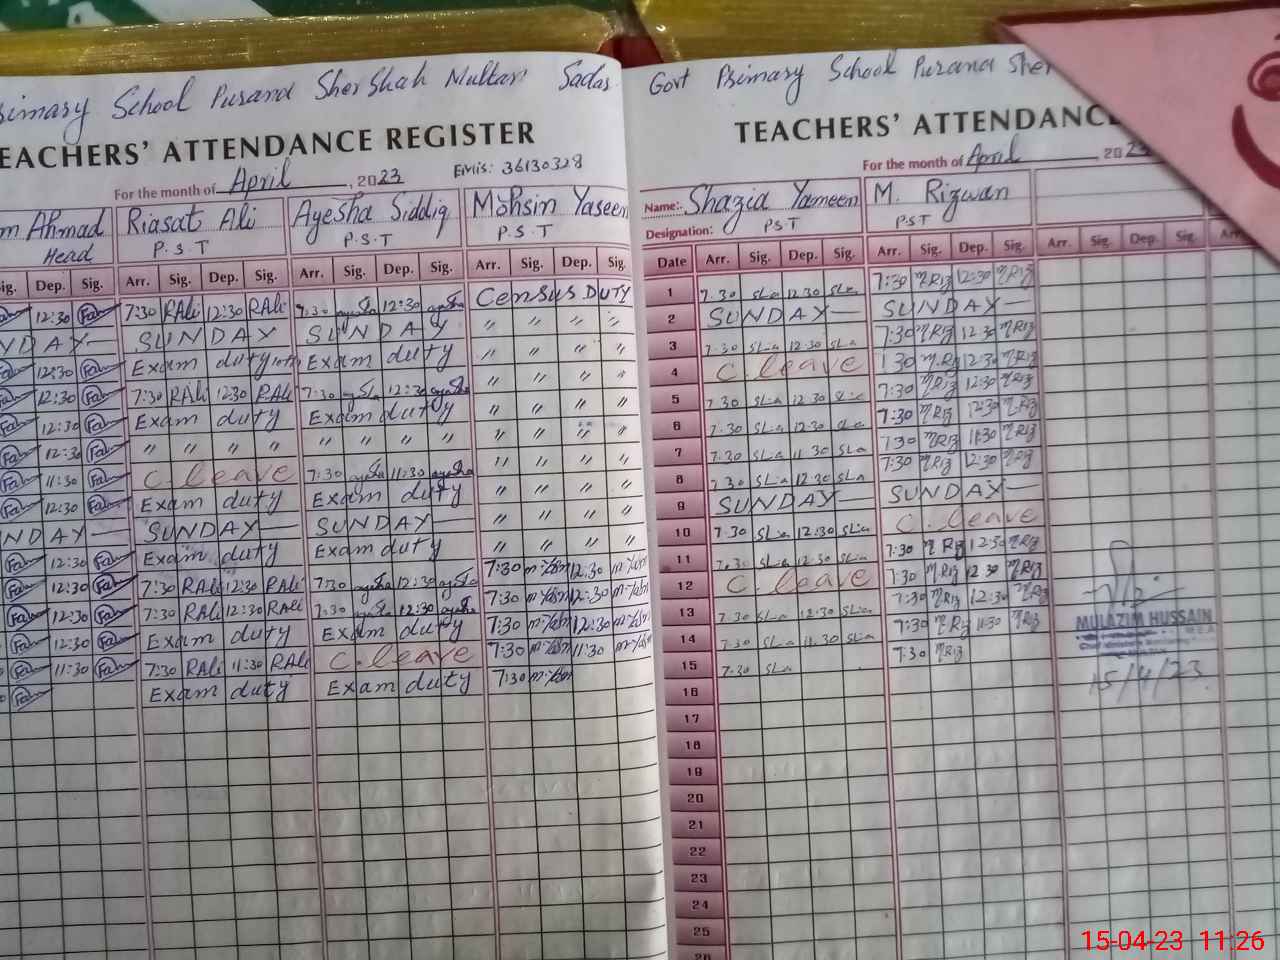 Primary School Purana Sher Shah Multan Sadar
TEACHERS' ATTENDANCE REGISTER
For the month of April, 2023 EMIS: 36130328
Ahmad Riasat Ali Ayesha Siddiq Mohsin Yaseen
Head P.S.T P.S.T P.S.T
Sig. Dep. Sig. Arr. Sig. Dep. Sig. Arr. Sig. Dep. Sig. Arr. Sig. Dep. Sig.
12:30 7:30 RAli 12:30 RAli 7:30 ayesha 12:30 ayesha Census DUTY
NDAY— SUNDAY SUNDAY " " " "
12:30 Exam duty Exam duty " " " "
12:30 7:30 RAli 12:30 RAli 7:30 12:30 ayesha " " " "
12:30 Exam duty Exam duty " " " "
12:30 " " " " " " " " " " " "
11:30 C. leave 7:30 ayesha 11:30 ayesha " " " "
12:30 Exam duty Exam duty " " " "
NDAY— SUNDAY— SUNDAY— " " " "
12:30 Exam duty Exam duty " " " "
12:30 7:30 RAli 12:30 RAli 7:30 ayesha 12:30 ayesha 7:30 12:30
12:30 7:30 RAli 12:30 RAli 7:30 ayesha 12:30 ayesha 7:30 12:30
12:30 Exam duty Exam duty 7:30 12:30
11:30 7:30 RAli 11:30 RAli C. leave 7:30 11:30
Exam duty Exam duty 7:30
Govt Primary School Purana Sher
TEACHERS' ATTENDANC
For the month of April 2023
Name: Shazia Yameen M. Rizwan
Designation: P.S.T P.S.T
Date Arr. Sig. Dep. Sig. Arr. Sig. Dep. Sig. Arr. Sig. Dep. Sig. Arr.
1 7.30 SLa 12.30 SLa 7:30 MRiz 12:30 MRiz
2 SUNDAY— SUNDAY—
3 7.30 SLa 12.30 SLa 7:30 MRiz 12:30 MRiz
4 C. leave 7:30 MRiz 12:30 MRiz
5 7.30 SLa 12.30 SLa 7:30 MRiz 12:30 MRiz
6 7.30 SLa 12.30 SLa 7:30 MRiz 12:30 MRiz
7 7.30 SLa 11.30 SLa 7:30 MRiz 11:30 MRiz
8 7.30 SLa 12.30 SLa 7:30 MRiz 12:30 MRiz
9 SUNDAY— SUNDAY—
10 7.30 SLa 12:30 SLa C. leave
11 7.30 SLa 12.30 SLa 7:30 MRiz 12:30 MRiz
12 C. leave 7:30 MRiz 12:30 MRiz
13 7.30 SLa 12:30 SLa 7:30 MRiz 12:30 MRiz
14 7.30 SLa 11.30 SLa 7:30 MRiz 11:30 MRiz
15 7.30 SLa 7:30 MRiz
16
17
18
19
20
21
22
23
24
25
26
MULAZIM HUSSAIN
15/4/23
15-04-23 11:26